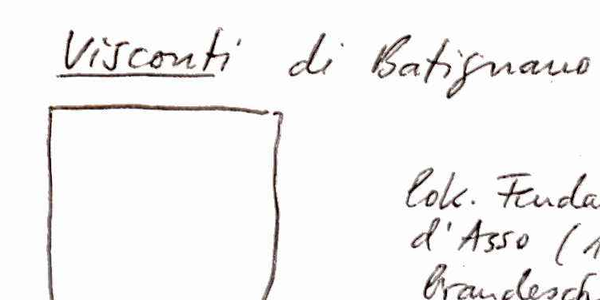 Visconti di Batignano
lok. Feuda
d'Asso (1
Brandesch